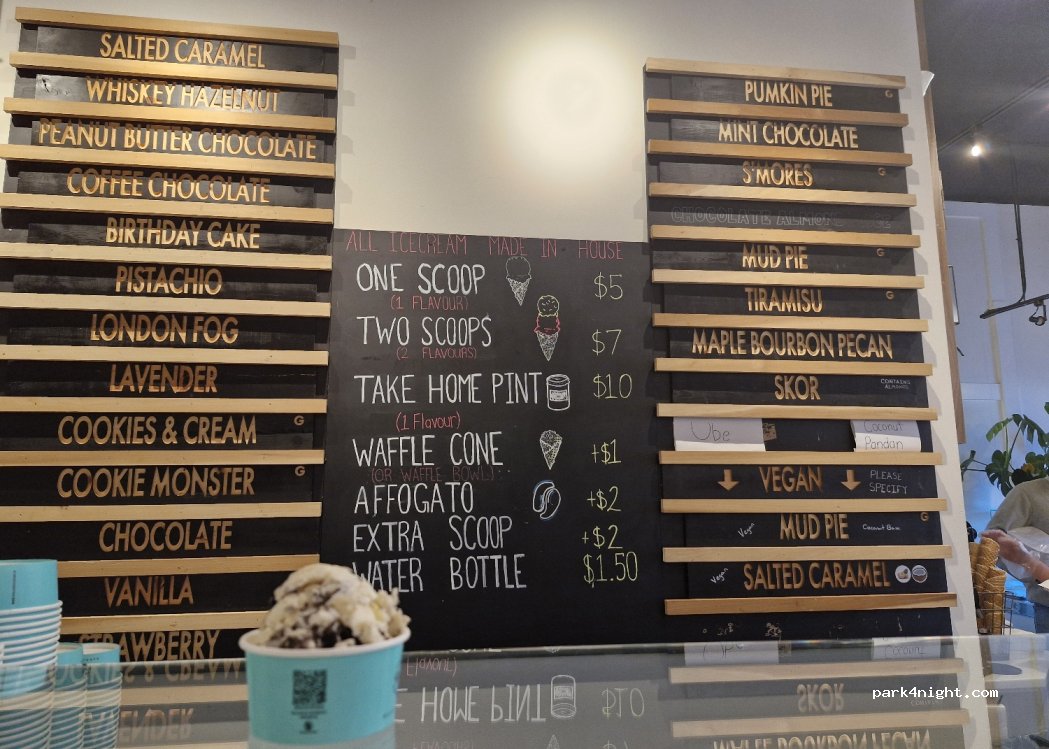 SALTED CARAMEL
WHISKEY HAZELNUT
PEANUT BUTTER CHOCOLATE
COFFEE CHOCOLATE
BIRTHDAY CAKE
PISTACHIO
LONDON FOG
LAVENDER
COOKIES & CREAM G
COOKIE MONSTER G
CHOCOLATE
VANILLA
STRAWBERRY
ALL ICECREAM MADE IN HOUSE
ONE SCOOP $5
(1 FLAVOUR)
TWO SCOOPS $7
(2 FLAVOURS)
TAKE HOME PINT $10
(1 Flavour)
WAFFLE CONE +$1
(OR WAFFLE BOWL)
AFFOGATO +$2
EXTRA SCOOP +$2
WATER BOTTLE $1.50
PUMKIN PIE G
MINT CHOCOLATE
S'MORES G
CHOCOLATE ALMOND
MUD PIE G
TIRAMISU G
MAPLE BOURBON PECAN
SKOR CONTAINS ALMONDS
Ube Coconut
Pandan
VEGAN PLEASE
SPECIFY
Vegan MUD PIE Coconut Base G
Vegan SALTED CARAMEL
park4night.com